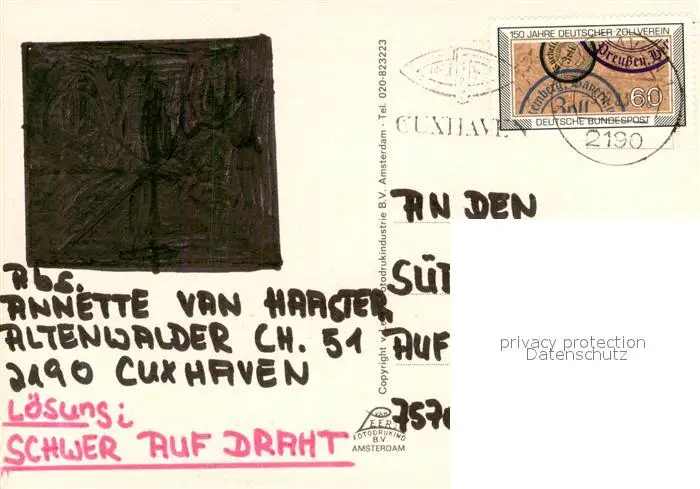 150 JAHRE DEUTSCHER ZOLLVEREIN
Preußen
Zoll
60
DEUTSCHE BUNDESPOST
CUXHAVEN
2190
AN DEN
SÜ
AUF
757
privacy protection
Datenschutz
Abs.
ANNETTE VAN HAASTER
ALTENWALDER CH. 51
2190 CUXHAVEN
LÖSUNG:
SCHWER AUF DRAHT
Fotodrukindustrie B.V. Amsterdam - Tel. 020-823223
Copyright
VAN
LEER
FOTODRUKIND
B.V.
AMSTERDAM